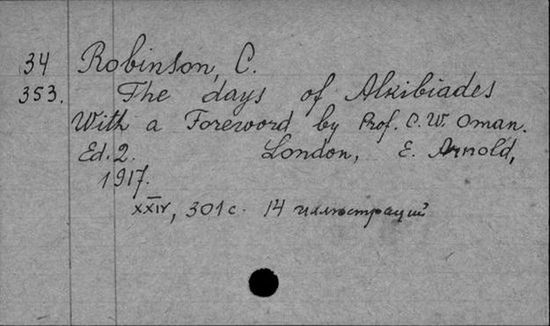 34 Robinson, C.
353. The days of Alkibiades
With a Foreword by Prof. C. W. Oman.
Ed. 2. London, E. Arnold,
1917.
XXIV, 301 с. 14 иллюстраций